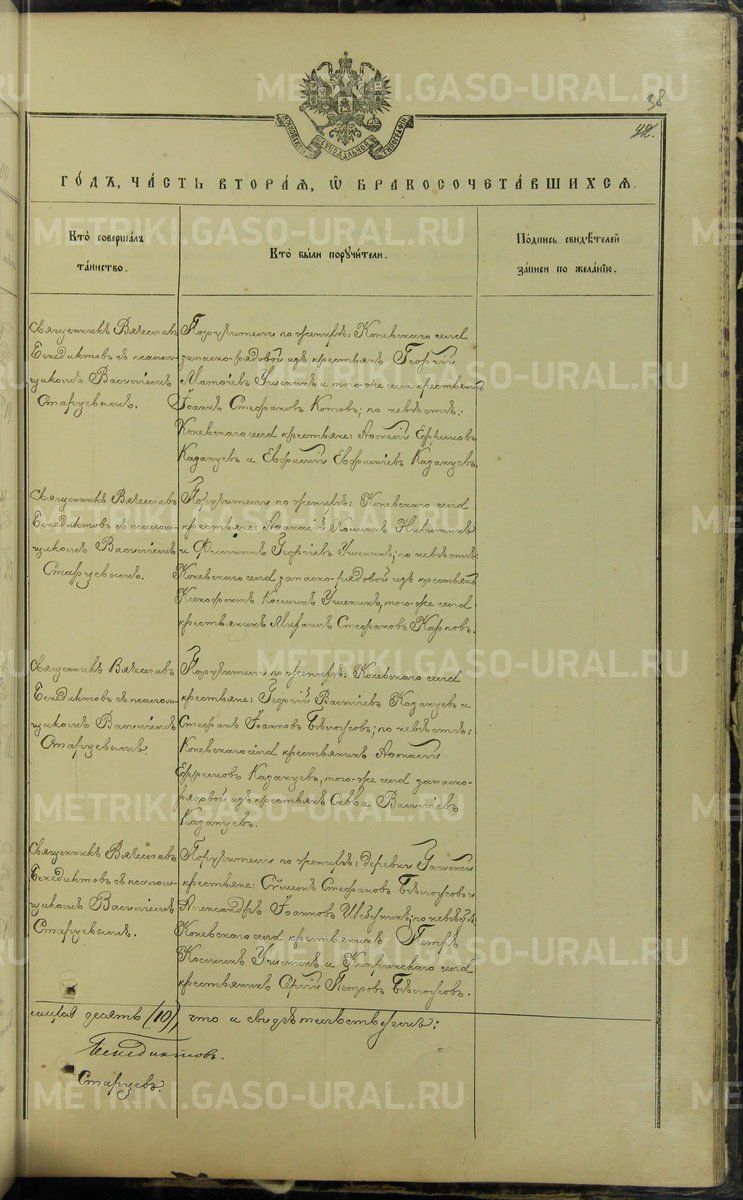 38
42.
МОСКОВСКОЙ СѴНОДАЛЬНОЙ ТИПОГРАФІИ
ГО́ДЪ, ЧА́СТЬ ВТОРА́Ѧ, Ѿ БРАКОСОЧЕТА́ВШИХСѦ.
Кто̀ соверша́лъ
та́инство.
Кто̀ бы́ли поручи́тели.
По́дпись свидѣ́телей
за́писи по жела́нїю.
Священникъ Вячеславъ
Бенедиктовъ съ псалом-
щикомъ Василіемъ
Старцевымъ.
Поручители по женихѣ: Коневскаго села
запасно-рядовой изъ крестьянъ Георгій
Матѳіевъ Ушенинъ и того-же села крестьянинъ
Іоаннъ Стефановъ Котовъ; по невѣстѣ:
Коневскаго села крестьяне: Аѳанасій Ефремовъ
Казанцевъ и Евфрасій Евфиміевъ Казанцевъ.
Священникъ Вячеславъ
Бенедиктовъ съ псалом-
щикомъ Василіемъ
Старцевымъ.
Поручители по женихѣ: Коневскаго села
крестьяне: Аѳанасій Никитинъ
и Филиппъ Георгіевъ Ушенинъ; по невѣстѣ:
Коневскаго села запасно-рядовой изъ крестьянъ
Ксенофонтъ Косминъ Ушенинъ, того-же села
крестьянинъ Михаилъ Стефановъ Карповъ.
Священникъ Вячеславъ
Бенедиктовъ съ псалом-
щикомъ Василіемъ
Старцевымъ.
Поручители по женихѣ: Коневскаго села
крестьяне: Георгій Василіевъ Казанцевъ и
Стефанъ Іоанновъ Бѣлоусовъ; по невѣстѣ:
Коневскаго села крестьянинъ Аѳанасій
Ефремовъ Казанцевъ, того-же села запасно-
рядовой изъ крестьянъ Савва Василіевъ
Казанцевъ.
Священникъ Вячеславъ
Бенедиктовъ съ псалом-
щикомъ Василіемъ
Старцевымъ.
Поручители по женихѣ: деревни
крестьяне: Сѵмеонъ Стефановъ Бѣлоусовъ и
Александръ Іоанновъ; по невѣстѣ:
Коневскаго села крестьянинъ Петръ
Косминъ Ушенинъ и Кипринскаго села
крестьянинъ Сергій Петровъ Бѣлоусовъ.
десять (10), что и свидѣтельствуемъ:
Бенедиктовъ.
Старцевъ.
METRIKI.GASO-URAL.RU